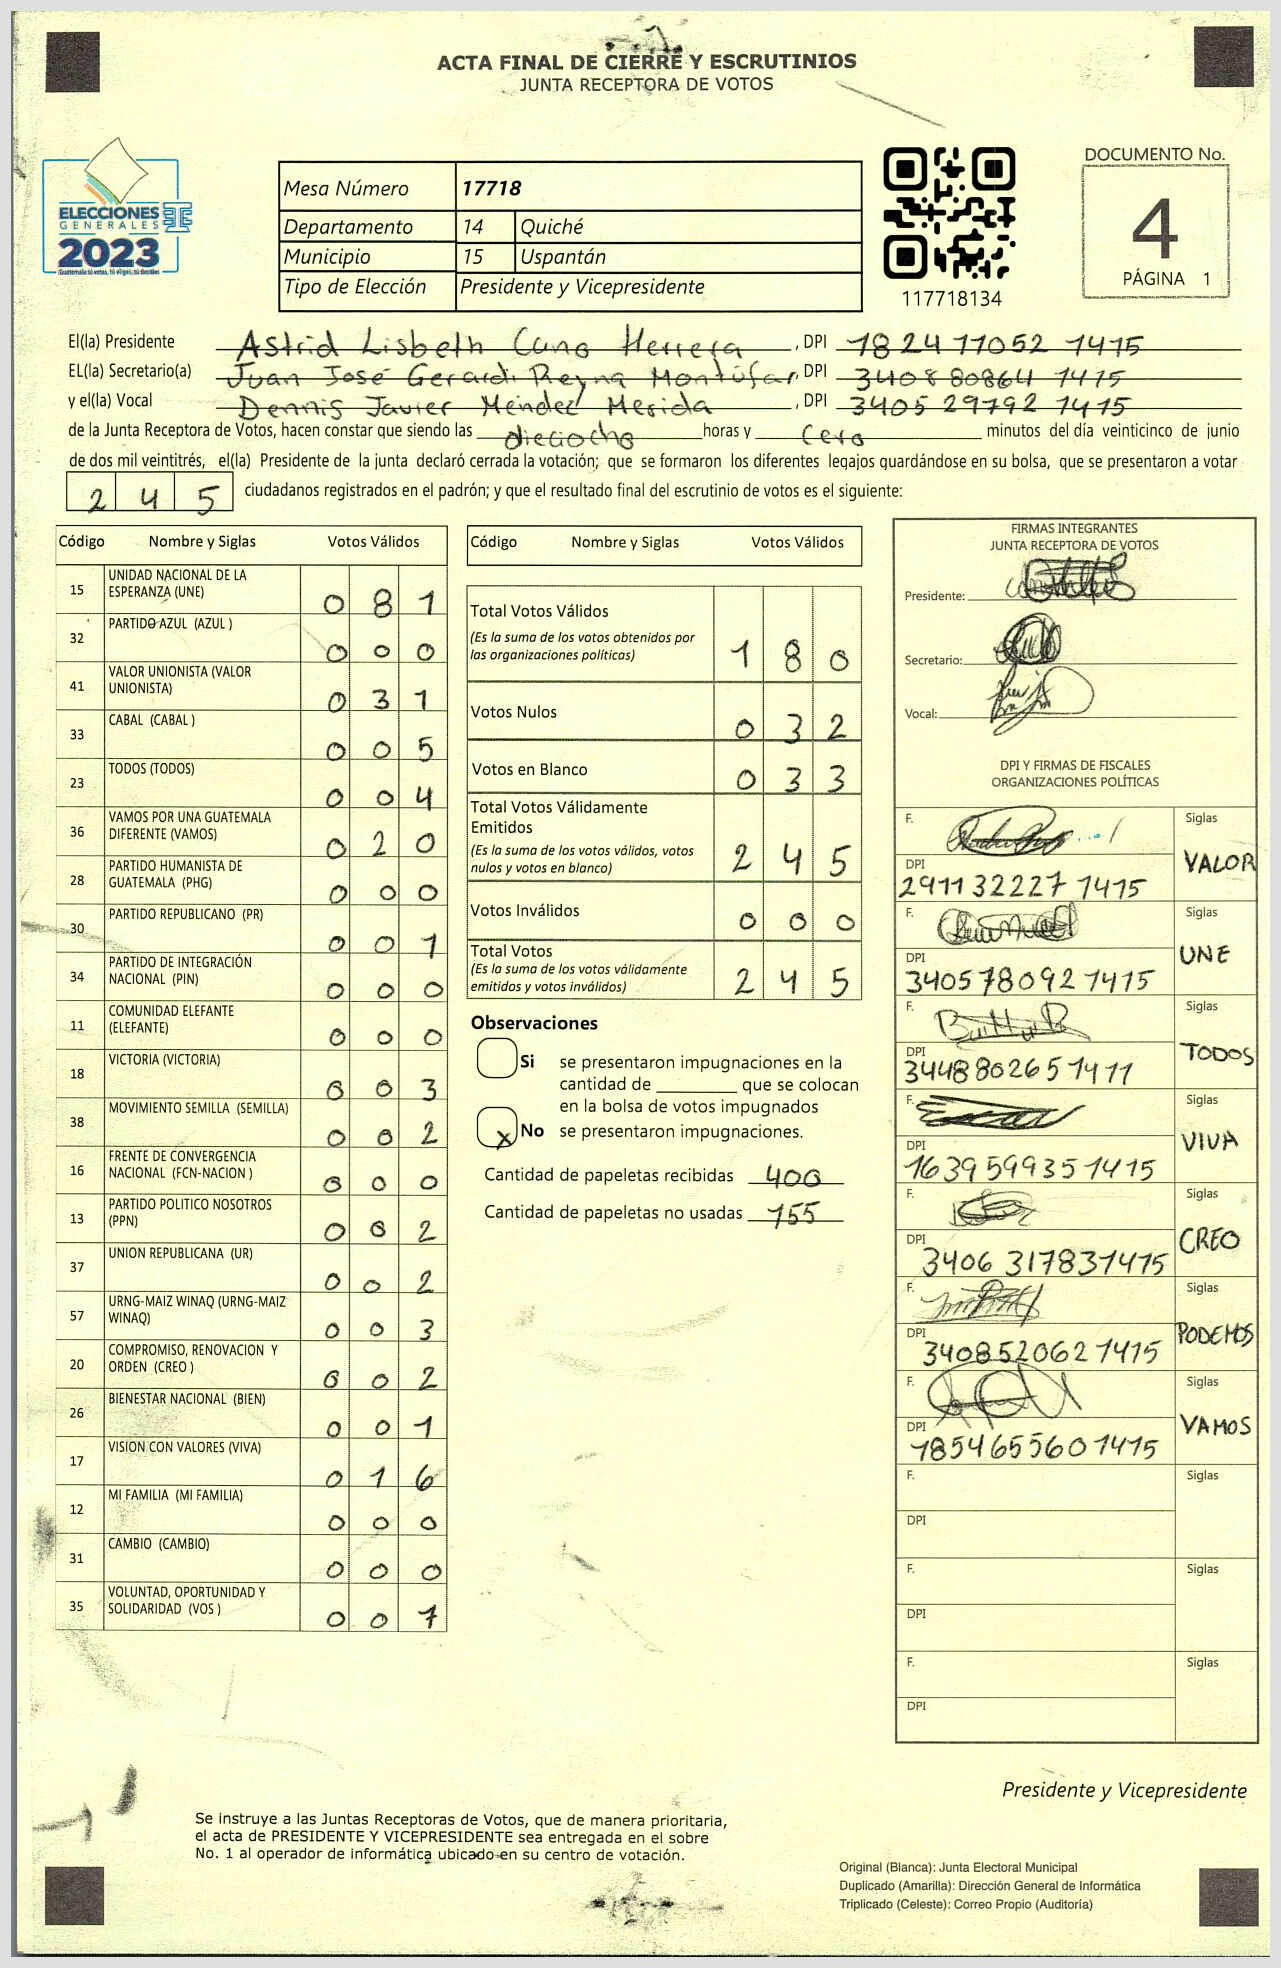 ACTA FINAL DE CIERRE Y ESCRUTINIOS
JUNTA RECEPTORA DE VOTOS
ELECCIONES
GENERALES
2023
Guatemala tú votas, tú eliges, tú decides
Mesa Número 17718
Departamento 14 Quiché
Municipio 15 Uspantán
Tipo de Elección Presidente y Vicepresidente
117718134
DOCUMENTO No.
4
PÁGINA 1
El(la) Presidente Astrid Lisbeth Cano Herrera, DPI 1824 11052 1415
EL(la) Secretario(a) Juan José Gerardi Reyna Montúfar, DPI 3408 80864 1415
y el(la) Vocal Dennis Javier Méndez Merida, DPI 3405 29792 1415
de la Junta Receptora de Votos, hacen constar que siendo las dieciocho horas y cero minutos del día veinticinco de junio
de dos mil veintitrés, el(la) Presidente de la junta declaró cerrada la votación; que se formaron los diferentes legajos guardándose en su bolsa, que se presentaron a votar
245 ciudadanos registrados en el padrón; y que el resultado final del escrutinio de votos es el siguiente:
Código Nombre y Siglas Votos Válidos
15 UNIDAD NACIONAL DE LA ESPERANZA (UNE) 081
32 PARTIDO AZUL (AZUL ) 000
41 VALOR UNIONISTA (VALOR UNIONISTA) 031
33 CABAL (CABAL ) 005
23 TODOS (TODOS) 004
36 VAMOS POR UNA GUATEMALA DIFERENTE (VAMOS) 020
28 PARTIDO HUMANISTA DE GUATEMALA (PHG) 000
30 PARTIDO REPUBLICANO (PR) 001
34 PARTIDO DE INTEGRACIÓN NACIONAL (PIN) 000
11 COMUNIDAD ELEFANTE (ELEFANTE) 000
18 VICTORIA (VICTORIA) 003
38 MOVIMIENTO SEMILLA (SEMILLA) 002
16 FRENTE DE CONVERGENCIA NACIONAL (FCN-NACION ) 000
13 PARTIDO POLITICO NOSOTROS (PPN) 002
37 UNION REPUBLICANA (UR) 002
57 URNG-MAIZ WINAQ (URNG-MAIZ WINAQ) 003
20 COMPROMISO, RENOVACION Y ORDEN (CREO ) 002
26 BIENESTAR NACIONAL (BIEN) 001
17 VISION CON VALORES (VIVA) 016
12 MI FAMILIA (MI FAMILIA) 000
31 CAMBIO (CAMBIO) 000
35 VOLUNTAD, OPORTUNIDAD Y SOLIDARIDAD (VOS ) 007
Código Nombre y Siglas Votos Válidos
Total Votos Válidos 180
(Es la suma de los votos obtenidos por
las organizaciones políticas)
Votos Nulos 032
Votos en Blanco 033
Total Votos Válidamente
Emitidos 245
(Es la suma de los votos válidos, votos
nulos y votos en blanco)
Votos Inválidos 000
Total Votos 245
(Es la suma de los votos válidamente
emitidos y votos inválidos)
Observaciones
Si se presentaron impugnaciones en la
cantidad de ________ que se colocan
en la bolsa de votos impugnados
X No se presentaron impugnaciones.
Cantidad de papeletas recibidas 400
Cantidad de papeletas no usadas 155
FIRMAS INTEGRANTES
JUNTA RECEPTORA DE VOTOS
Presidente:
Secretario:
Vocal:
DPI Y FIRMAS DE FISCALES
ORGANIZACIONES POLÍTICAS
F. Siglas
DPI 291132227 1415 VALOR
F. Siglas
DPI 340578092 1415 UNE
F. Siglas
DPI 344880265 1411 TODOS
F. Siglas
DPI 163959935 1415 VIVA
F. Siglas
DPI 3406 31783 1415 CREO
F. Siglas
DPI 340852062 1415 PODEMOS
F. Siglas
DPI 185465560 1415 VAMOS
F. Siglas
DPI
F. Siglas
DPI
F. Siglas
DPI
Presidente y Vicepresidente
Se instruye a las Juntas Receptoras de Votos, que de manera prioritaria,
el acta de PRESIDENTE Y VICEPRESIDENTE sea entregada en el sobre
No. 1 al operador de informática ubicado en su centro de votación.
Original (Blanca): Junta Electoral Municipal
Duplicado (Amarilla): Dirección General de Informática
Triplicado (Celeste): Correo Propio (Auditoría)